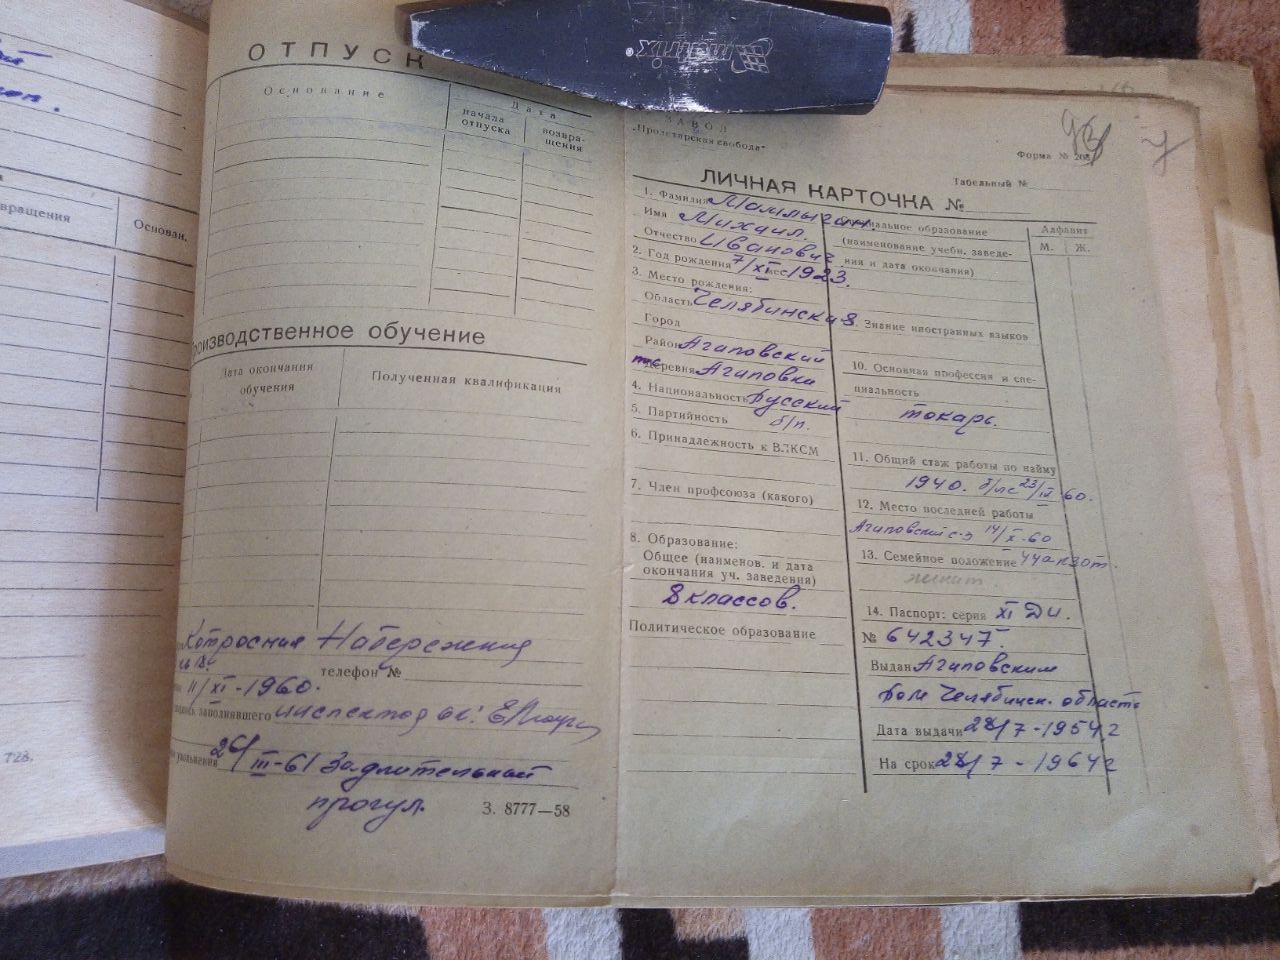 вращения
Основан.
728.
ОТПУСК
Основание
Дата
начала отпуска
возвра-
щения
оизводственное обучение
Дата окончания
обучения
Полученная квалификация
Которосная Набережная
телефон №
11/XI-1960.
заполнявшего инспектор ок:
увольнения 26/III-61 За длительный
прогул.
З. 8777—58
matrix
ЗАВОД
„Пролетарская свобода"
Форма № 203
Табельный №
ЛИЧНАЯ КАРТОЧКА №
1. Фамилия
Имя Михаил.
Отчество Иванович
2. Год рождения 7/XI мес 1923.
3. Место рождения:
Область Челябинская
Город
Район Агаповский
деревня Агаповка
4. Национальность Русский
5. Партийность б/п.
6. Принадлежность к ВЛКСМ
7. Член профсоюза (какого)
8. Образование:
Общее (наименов. и дата
окончания уч. заведения)
8 классов.
Политическое образование
образование
(наименование учебн. заведе-
ния и дата окончания)
Знание иностранных языков
10. Основная профессия и спе-
циальность
токарь.
11. Общий стаж работы по найму
1940.
12. Место последней работы
Агаповский с-з 14/X-60
13. Семейное положение
женат.
14. Паспорт: серия XI ДИ.
№ 642347.
Выдан Агаповским
Ром Челябинск. область
Дата выдачи 28/7-1954г
На срок 28/7-1964г
Алфавит
М.
Ж.